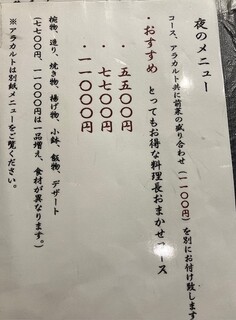 夜のメニュー
コース、アラカルト共に前菜の盛り合わせ(一一〇〇円)を別にお付け致します
・おすすめ とってもお得な料理長おまかせコース
・五五〇〇円
・七七〇〇円
・一一〇〇〇円
椀物、造り、焼き物、揚げ物、小鉢、飯物、デザート
(七七〇〇円、一一〇〇〇円は一品増え、食材が異なります。)
※アラカルトは別紙メニューをご覧ください。